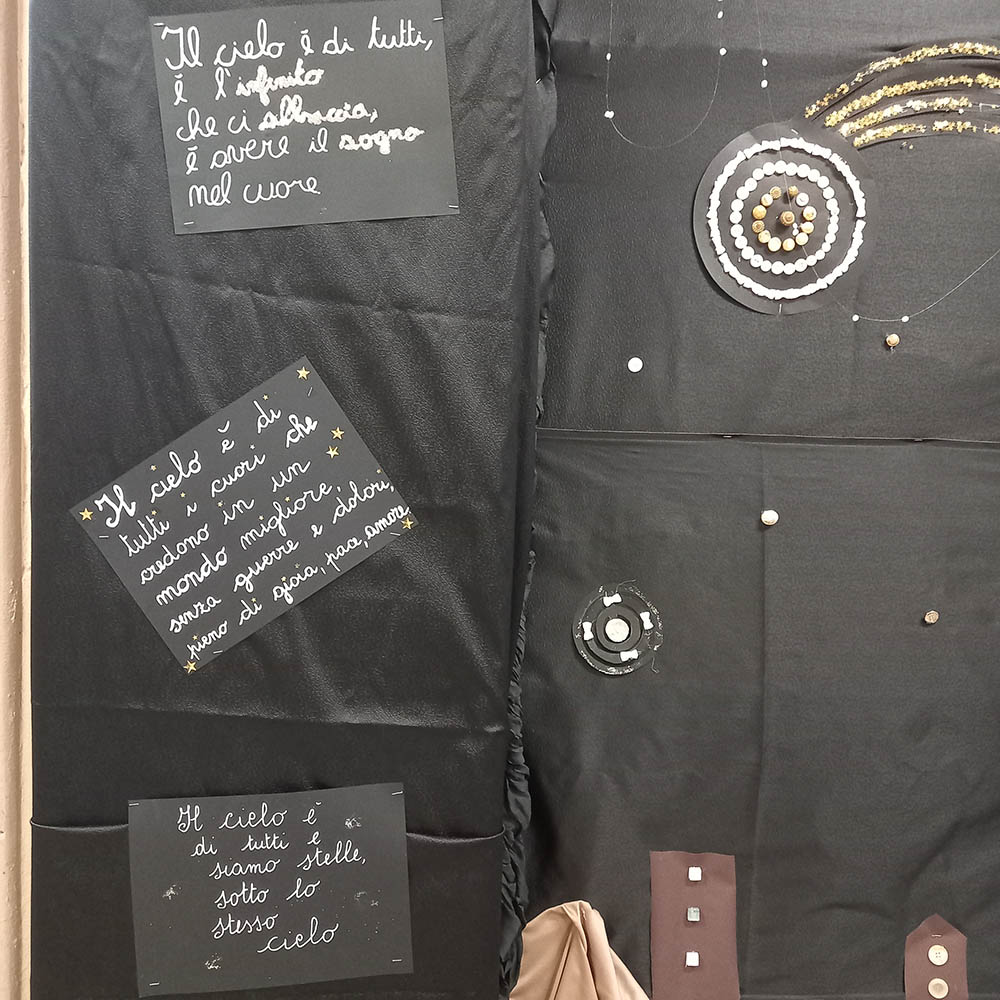 Il cielo è di tutti,
è l'infinito
che ci abbraccia,
è avere il sogno
nel cuore
Il cielo è di
tutti i cuori che
credono in un
mondo migliore,
senza guerre e dolori,
pieno di gioia, pace, amore.
Il cielo è
di tutti e
siamo stelle,
sotto lo
stesso
cielo